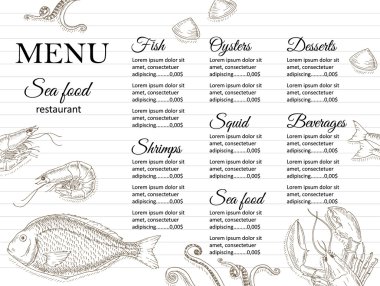 MENU
Sea food
restaurant
Fish
Lorem ipsum dolor sit
amet, consectetuer
adipiscing..........0,00$
Lorem ipsum dolor sit
amet, consectetuer
adipiscing..........0,00$
Shrimps
Lorem ipsum dolor sit
amet, consectetuer
adipiscing..........0,00$
Lorem ipsum dolor sit
amet, consectetuer
adipiscing..........0,00$
Oysters
Lorem ipsum dolor sit
amet, consectetuer
adipiscing..........0,00$
Lorem ipsum dolor sit
amet, consectetuer
adipiscing..........0,00$
Squid
Lorem ipsum dolor sit
amet, consectetuer
adipiscing..........0,00$
Lorem ipsum dolor sit
amet, consectetuer
adipiscing..........0,00$
Sea food
Lorem ipsum dolor sit
amet, consectetuer
adipiscing..........0,00$
Lorem ipsum dolor sit
amet, consectetuer
adipiscing..........0,00$
Desserts
Lorem ipsum dolor sit
amet, consectetuer
adipiscing..........0,00$
Lorem ipsum dolor sit
amet, consectetuer
adipiscing..........0,00$
Beverages
Lorem ipsum dolor sit
amet, consectetuer
adipiscing..........0,00$
Lorem ipsum dolor sit
amet, consectetuer
adipiscing..........0,00$